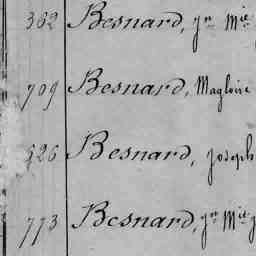 362 Besnard, Jn Mie
709 Besnard, Magloire
526 Besnard, Joseph
773 Besnard, Jn Mie